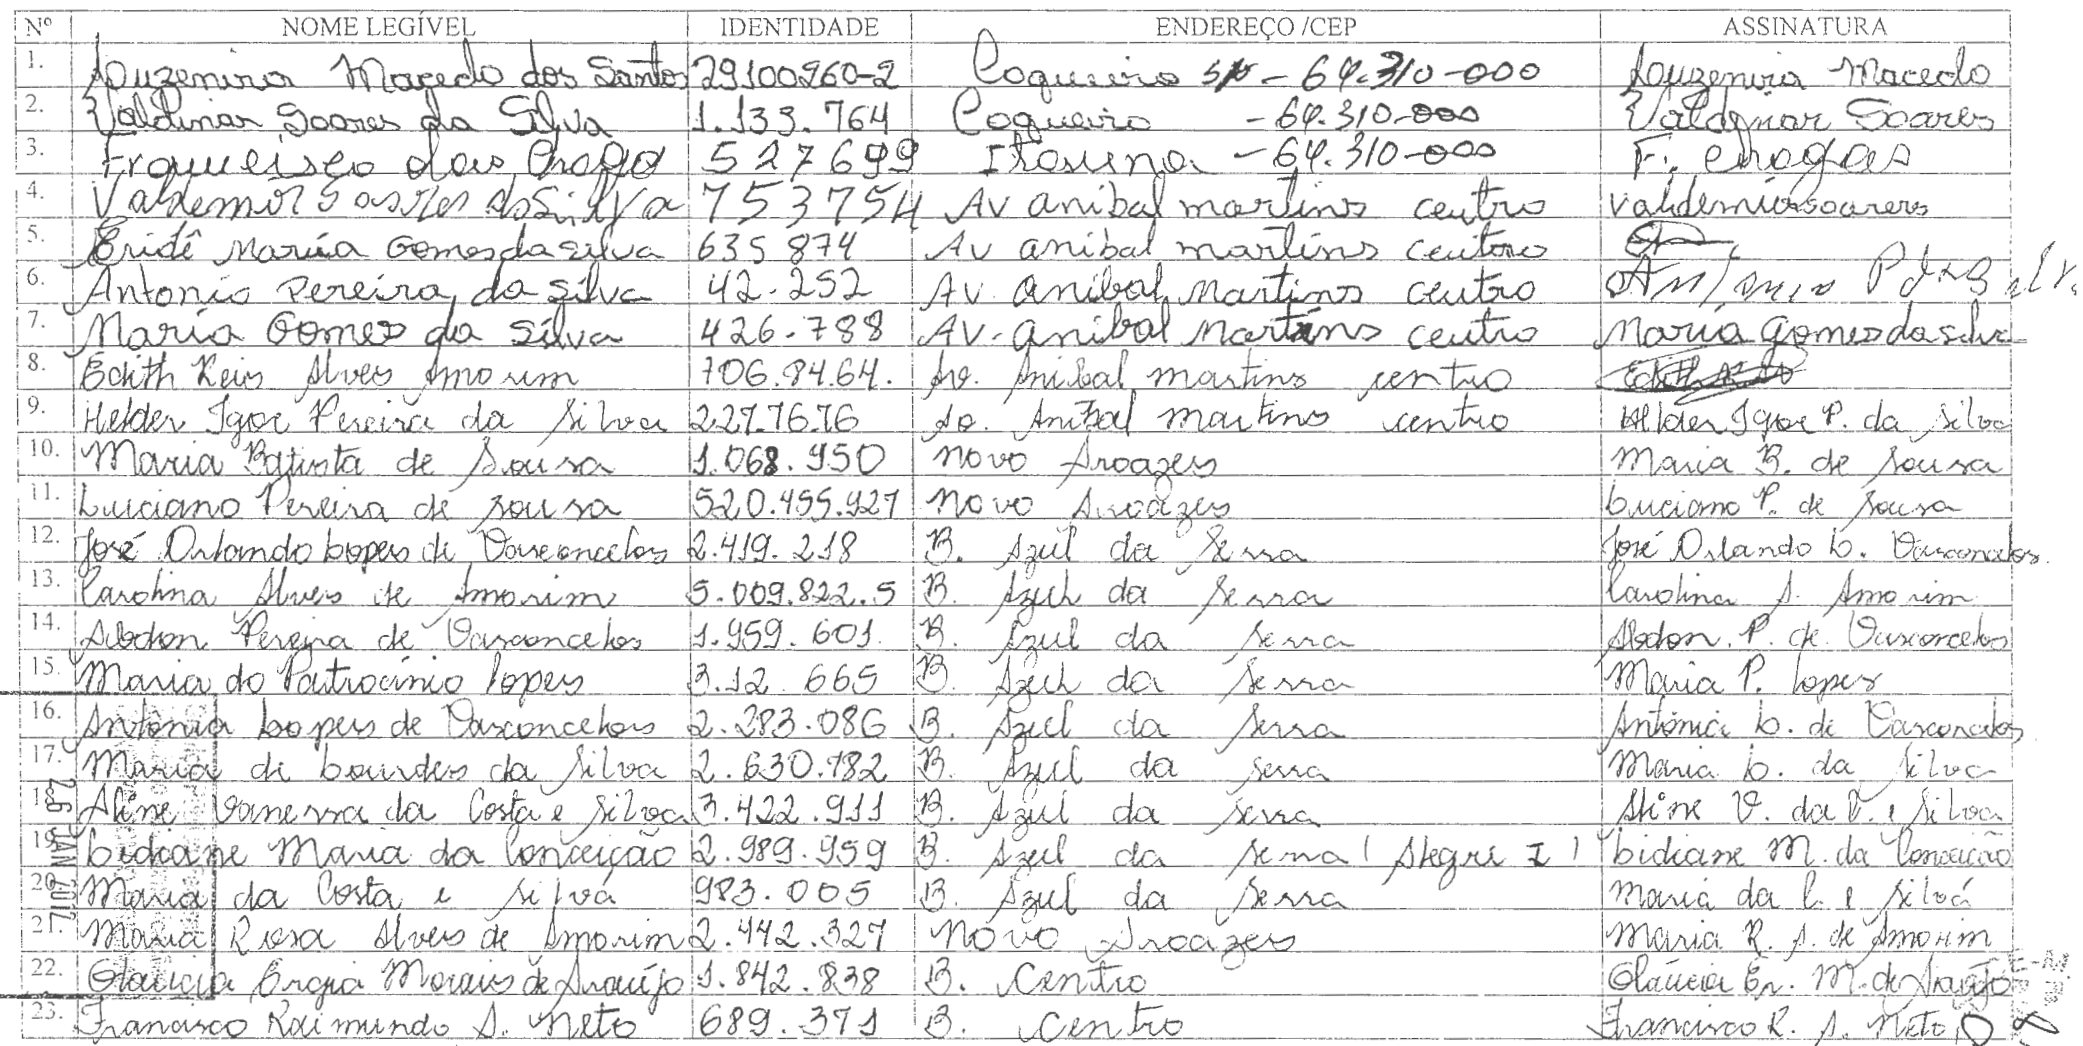 Nº NOME LEGÍVEL IDENTIDADE ENDEREÇO /CEP ASSINATURA
1. Luzenira Macedo dos Santos 29100260-2 Coqueiro - 64.310-000 Luzenira Macedo
2. Valdinar Soares da Silva 1.133.764 Coqueiro - 64.310-000 Valdinar Soares
3. das Chagas 527699 - 64.310-000 F. chagas
4. 753754 Av anibal martins centro
5. Eridê Maria Gomes da silva 635874 Av anibal martins centro
6. Antonio Pereira da Silva 42.252 Av. anibal Martins centro
7. Maria Gomes da Silva 426.788 Av. anibal Martins centro Maria Gomes da silva
8. Edith Reis Alves Amorim 706.84.64. Av. Anibal martins centro
9. Helder Igor Pereira da Silva 227.76.76 Av. Anibal martins centro Helder Igor P. da Silva
10. Maria Batista de Sousa 1.068.950 Novo Aroazes Maria B. de Sousa
11. Luciano Pereira de Sousa 520.455.927 Novo Aroazes Luciano P. de Sousa
12. José Orlando Lopes de Vasconcelos 2.419.218 B. Azul da Serra José Orlando L. Vasconcelos
13. Carolina Alves de Amorim 5.009.822.5 B. Azul da Serra Carolina A. Amorim
14. Abdon Pereira de Vasconcelos 1.959.601 B. Azul da Serra Abdon. P. de Vasconcelos
15. Maria do Patrocínio Lopes 3.12 665 B. Azul da Serra Maria P. Lopes
16. Antônia Lopes de Vasconcelos 2.283.086 B. Azul da Serra Antônia L. de Vasconcelos
17. Maria de Lourdes da Silva 2.630.782 B. Azul da Serra Maria L. da Silva
18. Aline Vanessa da Costa e Silva 3.422.911 B. Azul da Serra Aline V. da e Silva
19. Lidiane Maria da Conceição 2.989.959 B. Azul da Serra (Alegre I) Lidiane M. da Conceição
20. Maria da Costa e Silva 983.005 B. Azul da Serra Maria da C. e Silva
21. Maria Rosa Alves de Amorim 2.442.327 Novo Aroazes Maria R. A. de Amorim
22. Glaucia Morais de Araújo 1.842.838 B. Centro Glaucia M. de Araújo
23. Francisco Raimundo A. Neto 689.371 B. Centro Francisco R. A. Neto
26 JAN 2012